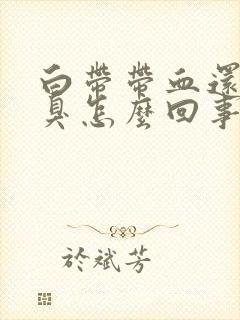 白帶帶血還
臭怎麼回事
於斌芳